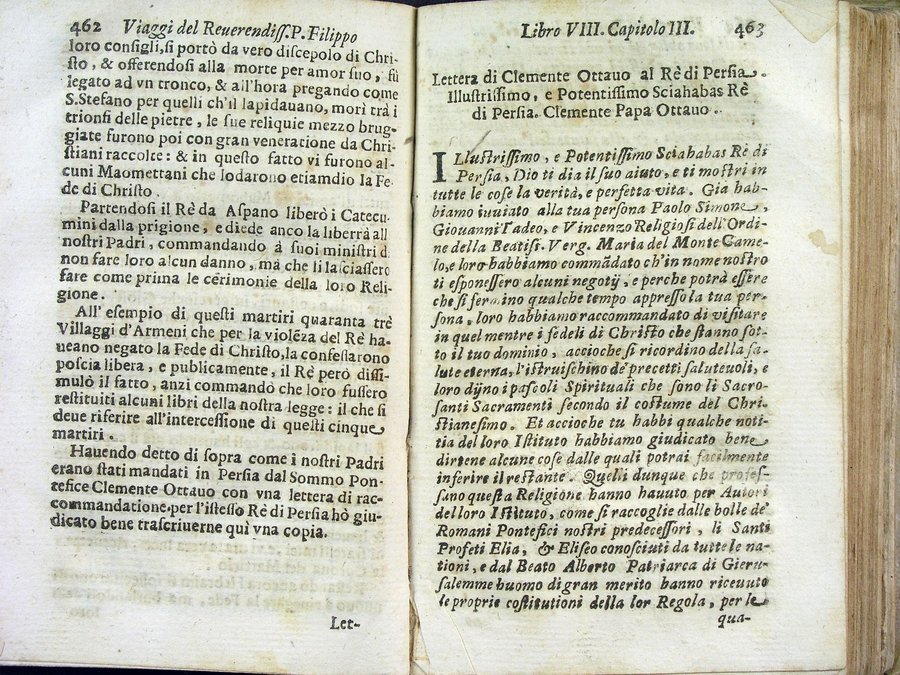 462 Viaggi del Reuerendiss. P. Filippo
loro consigli, si portò da vero discepolo di Chri-
sto, & offerendosi alla morte per amor suo, fù
legato ad vn tronco, & all'hora pregando come
S. Stefano per quelli ch'il lapidauano, morì trà i
trionfi delle pietre, le sue reliquie mezzo brug-
giate furono poi con gran veneratione da Chri-
stiani raccolte: & in questo fatto vi furono al-
cuni Maomettani che lodarono etiamdio la Fe-
de di Christo.
Partendosi il Rè da Aspano liberò i Catecu-
mini dalla prigione, e diede anco la liberrà alli
nostri Padri, commandando à suoi ministri di
non fare loro alcun danno, mà che li lasciassero
fare come prima le cerimonie della loro Reli-
gione.
All'esempio di questi martiri quaranta trè
Villaggi d'Armeni che per la violẽza del Rè ha-
ueano negato la Fede di Christo, la confessarono
poscia libera, e publicamente, il Rè però dissi-
mulò il fatto, anzi commandò che loro fussero
restituiti alcuni libri della nostra legge: il che si
deue riferire all'intercessione di questi cinque
martiri.
Hauendo detto di sopra come i nostri Padri
erano stati mandati in Persia dal Sommo Pon-
tefice Clemente Ottauo con vna lettera di rac-
commandatione per l'istesso Rè di Persia hò giu-
dicato bene trascriuerne quì vna copia.
Let-
Libro VIII. Capitolo III. 463
Lettera di Clemente Ottauo al Rè di Persia.
Illustrissimo, e Potentissimo Sciahabas Rè
di Persia. Clemente Papa Ottauo.
ILlustrissimo, e Potentissimo Sciahabas Rè di
Persia, Dio ti dia il suo aiuto, e ti mostri in
tutte le cose la verità, e perfetta vita. Già hab-
biamo inuiato alla tua persona Paolo Simone,
Giouanni Tadeo, e Vincenzo Religiosi dell'Ordi-
ne della Beatiss. Verg. Maria del Monte Carme-
lo, e loro habbiamo commãdato ch'in nome nostro
ti esponessero alcuni negotÿ, e perche potrà essere
che si fermino qualche tempo appresso la tua per-
sona, loro habbiamo raccommandato di visitare
in quel mentre i fedeli di Christo che stanno sot-
to il tuo dominio, accioche si ricordino della sa-
lute eterna, l'istruischino de' precetti saluteuoli, e
loro dijno i pascoli Spirituali che sono li Sacro-
santi Sacramenti secondo il costume del Chri-
stianesimo. Et accioche tu habbi qualche noti-
tia del loro Istituto habbiamo giudicato bene
dirtene alcune cose dalle quali potrai facilmente
inferire il restante. Quelli dunque che profes-
sano questa Religione hanno hauuto per Autori
del loro Istituto, come si raccoglie dalle bolle de'
Romani Pontefici nostri predecessori, li Santi
Profeti Elia, & Eliseo conosciuti da tutte le na-
tioni, e dal Beato Alberto Patriarca di Gieru-
salemme huomo di gran merito hanno riceuuto
le proprie costitutioni della lor Regola, per le
qua-